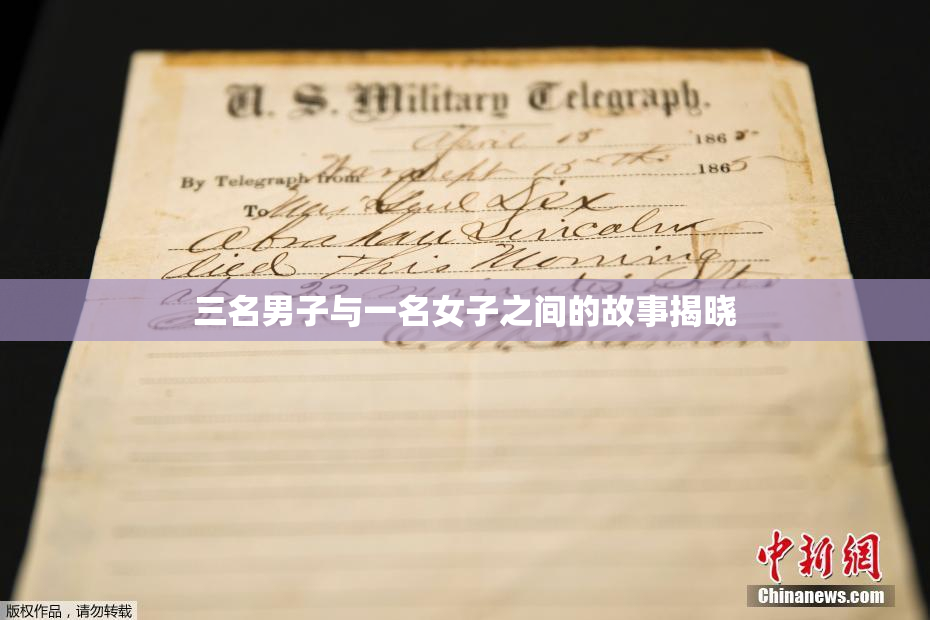 U. S. Military Telegraph.
April 15 1865
By Telegraph from War Dept 15th 1865
To Maj Genl Dix
Abraham Lincoln
died This Morning
at 22 minutes after
三名男子与一名女子之间的故事揭晓
E. M. Stanton
中新网
Chinanews.com
版权作品，请勿转载